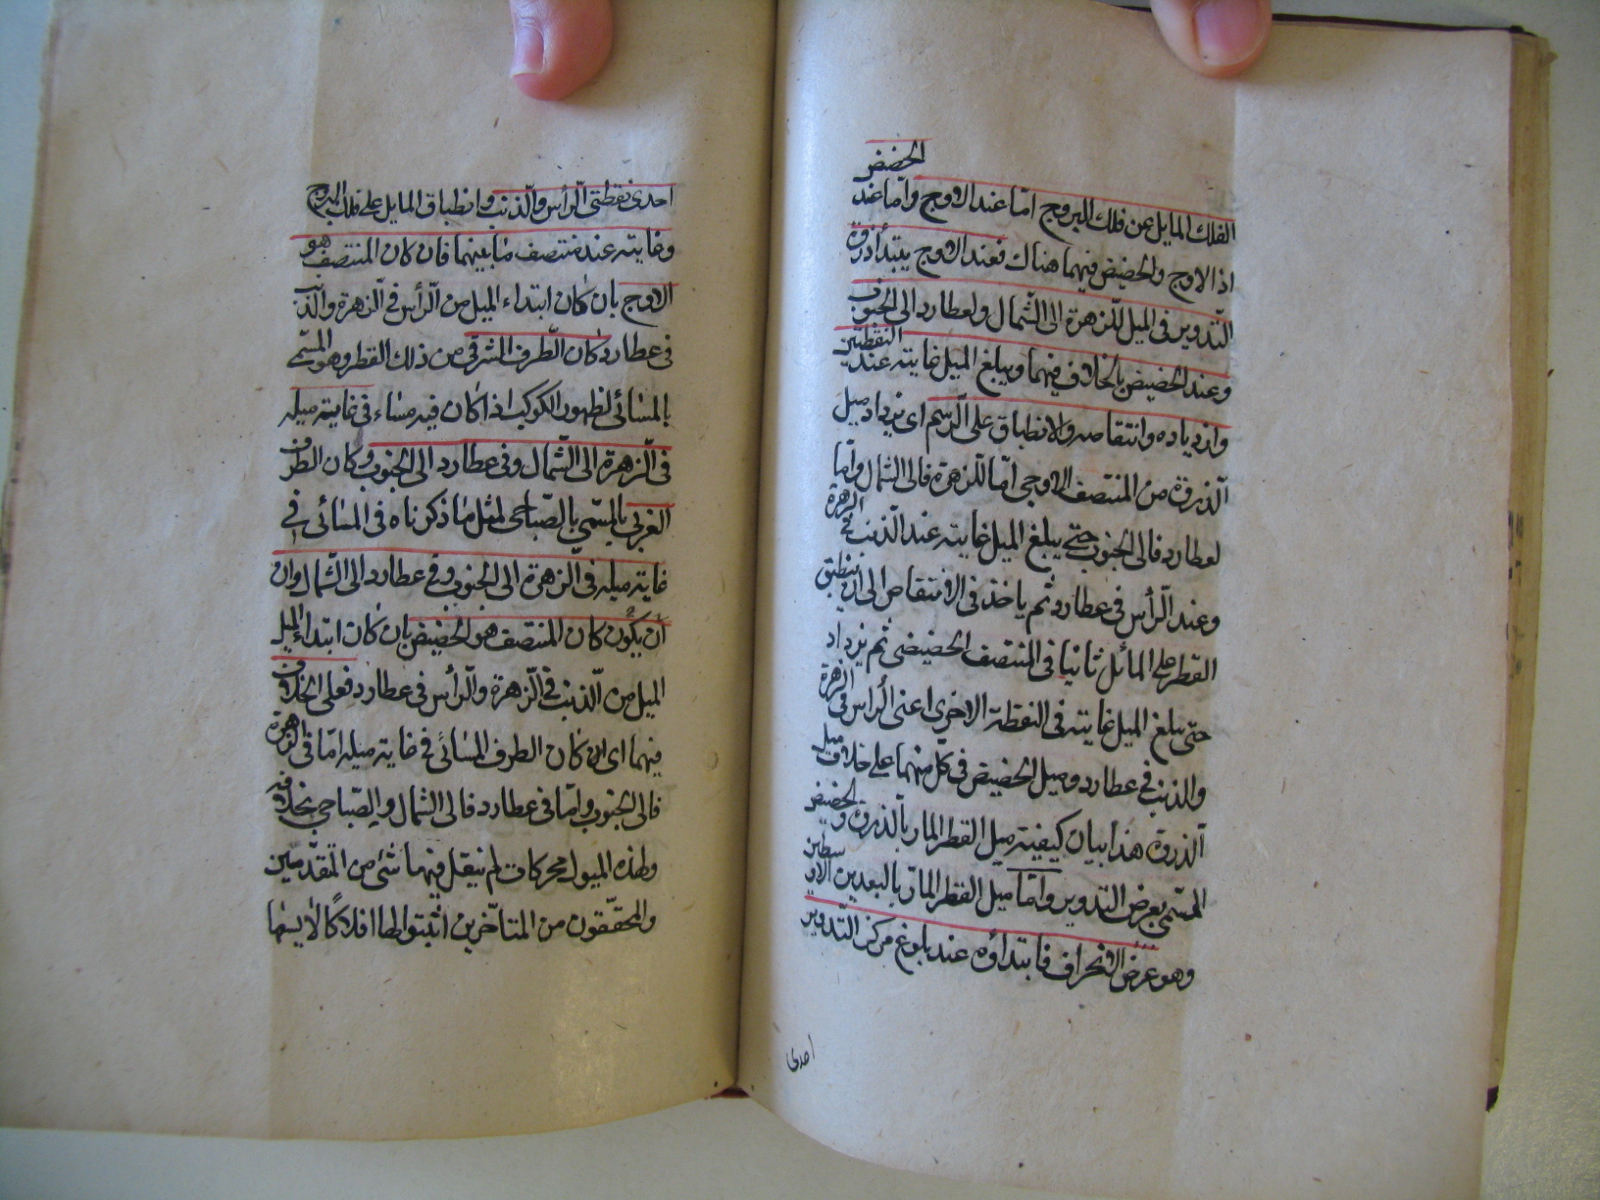 الفلك المايل عن فلك البروج اما عند الاوج واما عند الحضيض
اذ الاوج والحضيض فيهما هناك فعند الاوج يبتدأ ذروة
التدوير في الميل للزهرة الى الشمال ولعطارد الى الجنوب
وعند الحضيض بالخلاف فيهما ويبلغ الميل غايته عند النقطتين
وازدياده وانتقاصه والانطباق على الرسم اى يزداد ميل
الذروة من المنتصف الاوجى اما للزهرة فالى الشمال واما
لعطارد فالى الجنوب حتى يبلغ الميل غايته عند الذنب في الزهرة
وعند الرأس في عطارد ثم ياخذ في الانتقاص الى ان ينطبق
القطر على المائل ثانيا في المنتصف الحضيضى ثم يزداد
حتى يبلغ الميل غايته في النقطة الاخرى اعنى الرأس في الزهرة
والذنب في عطارد وميل الحضيض في كل منهما على خلاف ميل
الذروة هذا بيان كيفية ميل القطر المار بالذروة والحضيض
المسمى بعرض التدوير واما ميل القطر المار بالبعدين الاوسطين
وهو عرض الانحراف فابتداؤه عند بلوغ مركز التدوير
احدى
احدى نقطتى الرأس والذنب وانطباق المايل على فلك البروج
وغايته عند منتصف ما بينهما فان كان المنتصف هو
الاوج بان كان ابتداء الميل من الرأس في الزهرة والذنب
في عطارد كان الطرف الشرقى من ذلك القطر وهو المسمى
بالمسائى لظهور الكوكب اذا كان فيه مساء في غاية ميله
في الزهرة الى الشمال وفي عطارد الى الجنوب وكان الطرف
الغربى المسمى بالصباحى لمثل ما ذكرناه في المسائى في
غاية ميله في الزهرة الى الجنوب وفي عطارد الى الشمال وان
أن يكون كان المنتصف هو الحضيض بان كان ابتداء الميل
الميل من الذنب في الزهرة والرأس في عطارد فعلى الخلاف
فيهما اى ان كان الطرف المسائى في غاية ميله اما في الزهرة
فالى الجنوب واما في عطارد فالى الشمال والصباحى بخلافه
ولهذه الميول محركات لم ينقل فيها شئ من المتقدمين
والمحققون من المتاخرين اثبتوا لها افلاكا لا يسعها